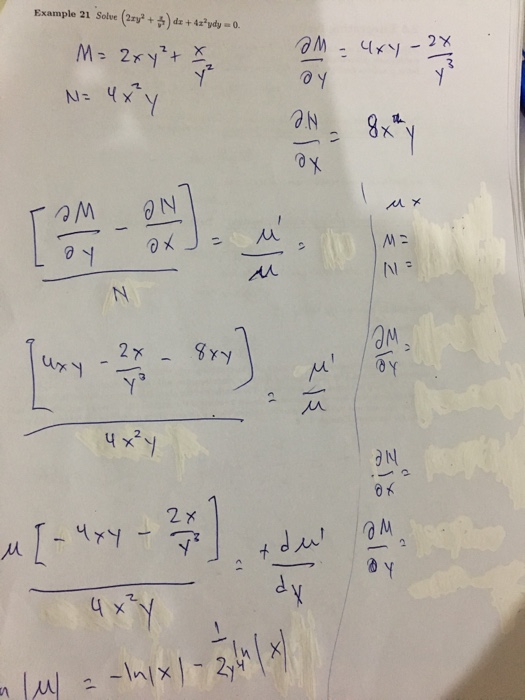 Example 21 Solve (2xy² + x/y²) dx + 4x²ydy = 0.
M = 2xy² + x/y²
∂M/∂y = 4xy - 2x/y³
N = 4x²y
∂N/∂x = 8xy
[∂M/∂y - ∂N/∂x] / N = μ'/μ =
μx
M =
N =
[4xy - 2x/y³ - 8xy] / 4x²y = μ'/μ
∂M/∂y =
∂N/∂x =
μ[-4xy - 2x/y³] / 4x²y = + dμ'/dy
∂M/∂y =
|μ| = -ln|x| - 1/2y⁴ ln|x|